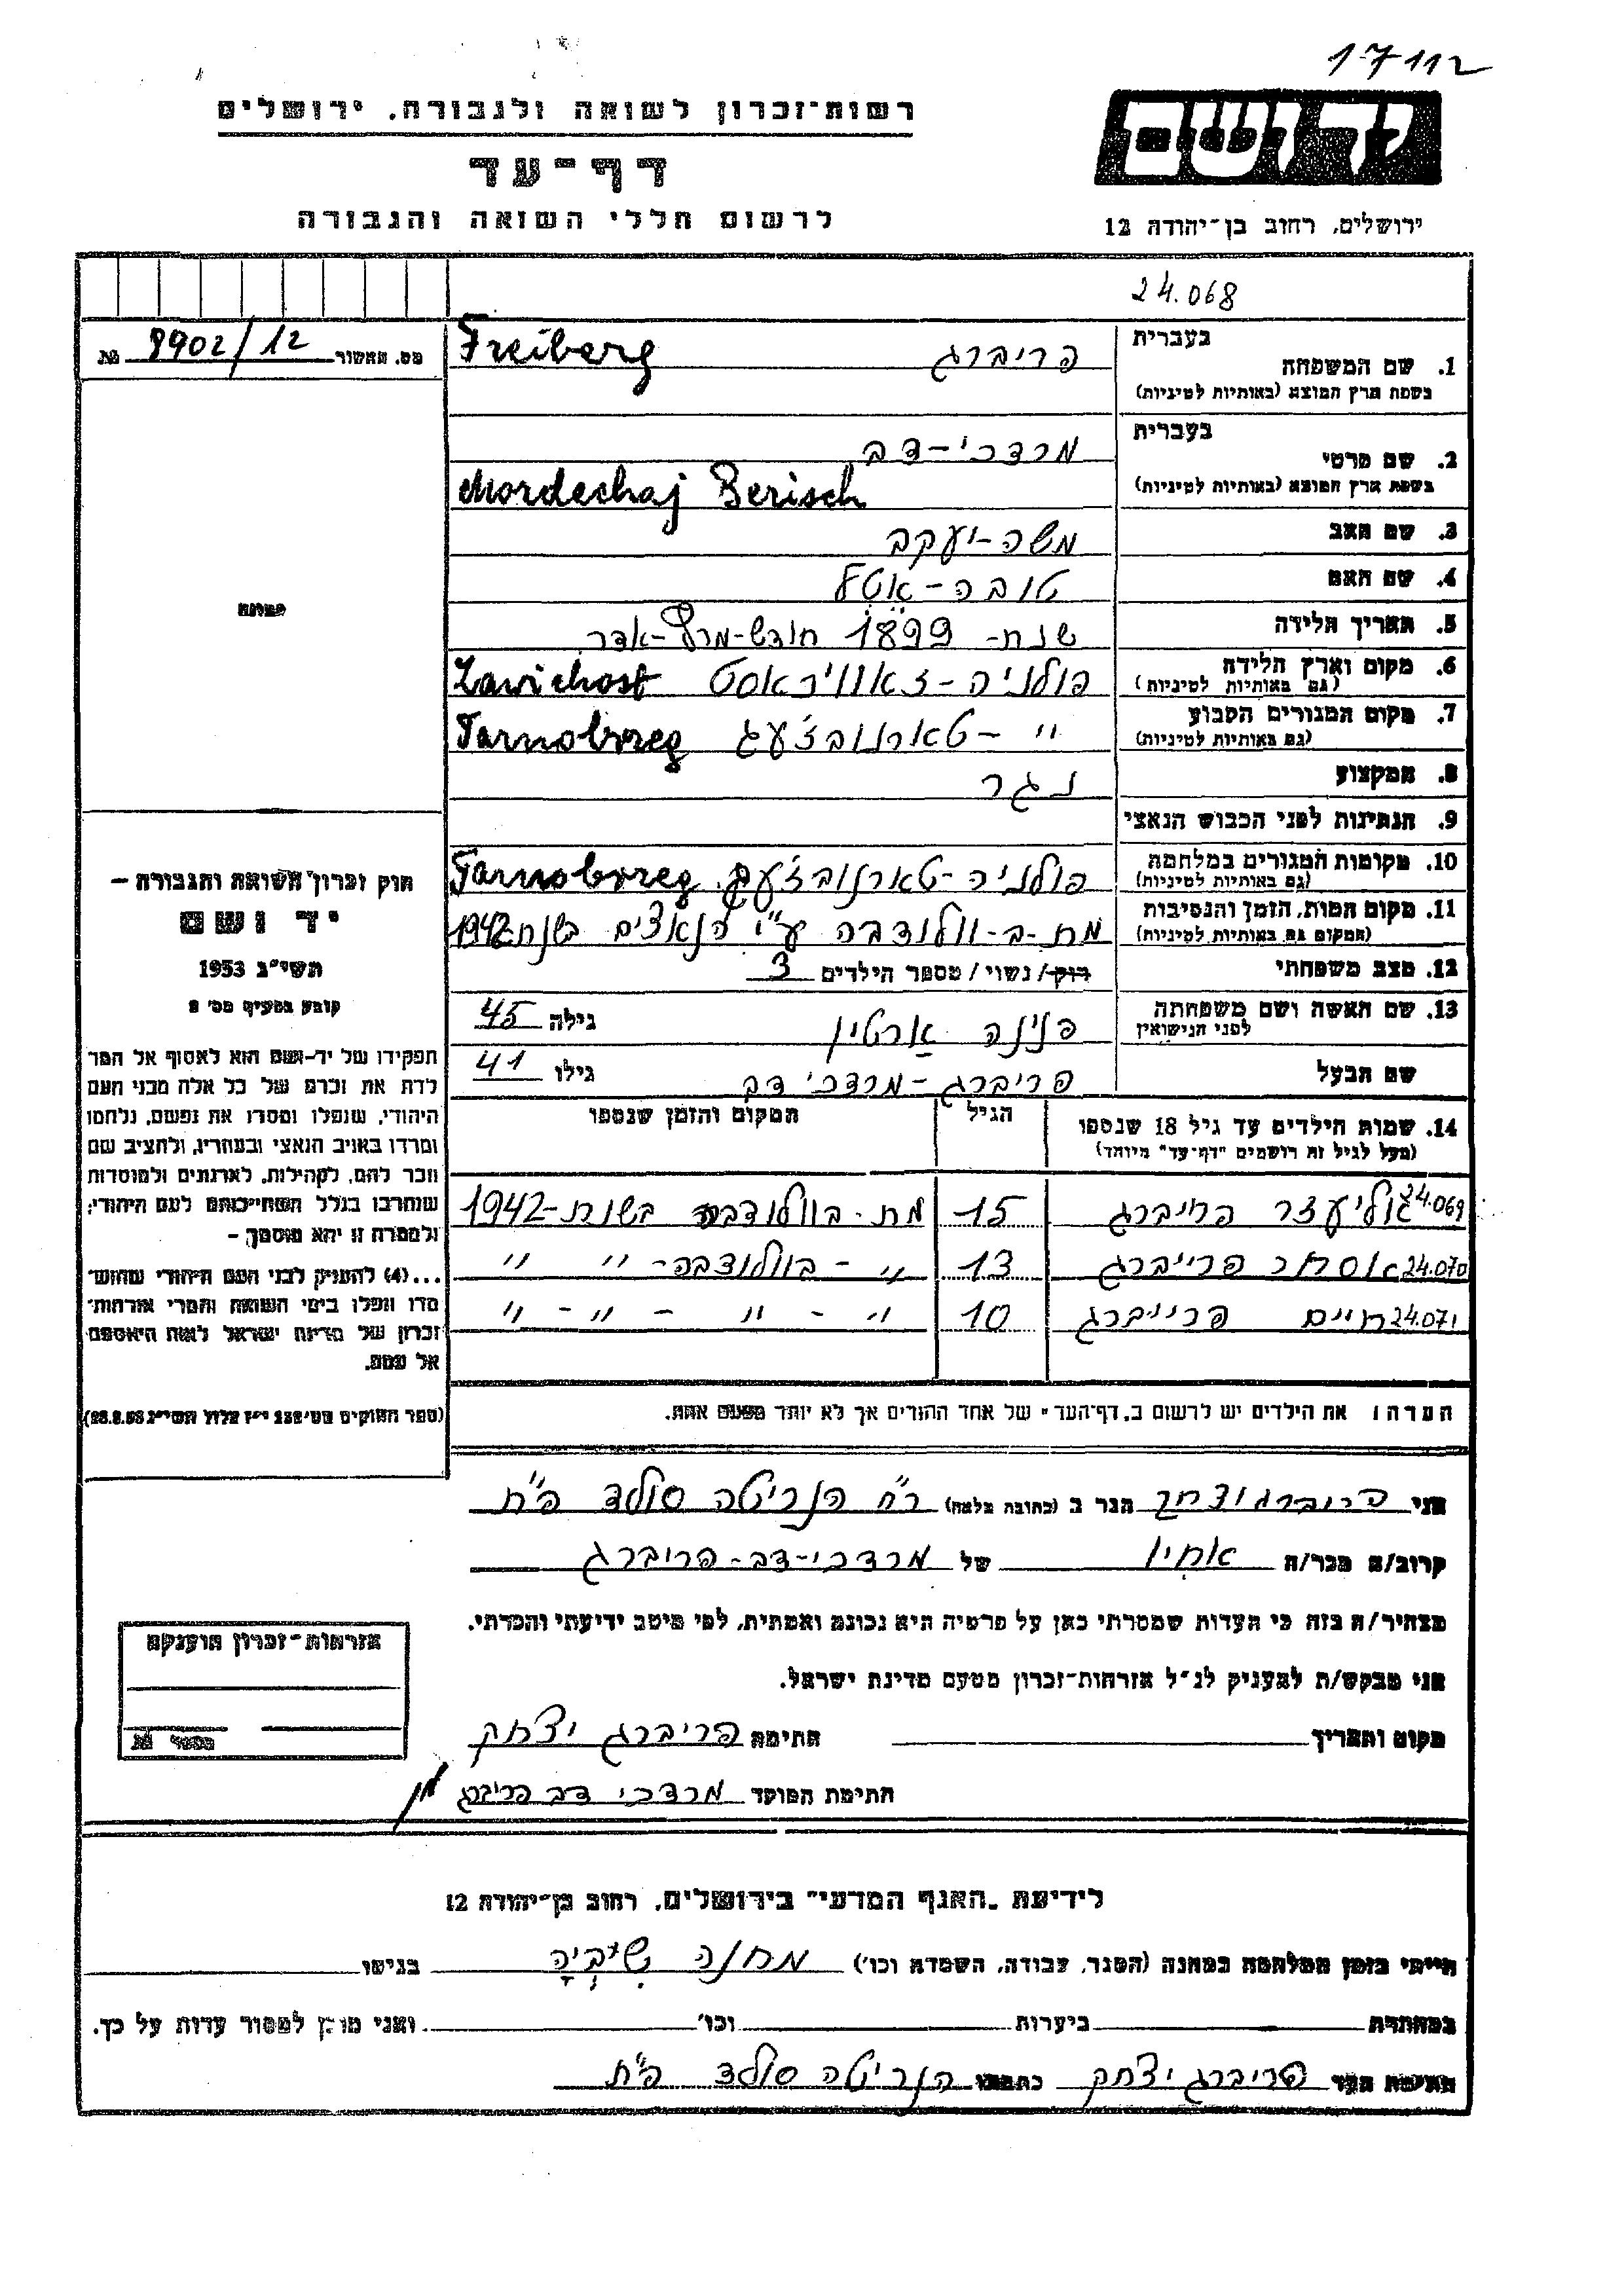 17112
רשות־זכרון לשואה ולגבורה. ירושלים
יד ושם
דף־עד
לרשום חללי השואה והגבורה
ירושלים, רחוב בן־יהודה 12
24.068
מס. האשור 8902/12
1. שם המשפחה
בעברית פריברג
בשפת ארץ המוצא (באותיות לטיניות) Freiberg
2. שם פרטי
בעברית מרדכי-דב
בשפת ארץ המוצא (באותיות לטיניות) Mordechaj Berisch
3. שם האב משה-יעקב
4. שם האם טובה-אטל
5. תאריך הלידה שנת- 1899 חודש-מרץ-אדר
6. מקום וארץ הלידה פולניה-זאוויכאסט Zawichost
(גם באותיות לטיניות)
7. מקום המגורים הקבוע " - טארנובז'עג Tarnobrzeg
(גם באותיות לטיניות)
8. המקצוע נגר
9. הנתינות לפני הכבוש הנאצי
10. מקומות המגורים במלחמה פולניה-טארנובז'עג Tarnobrzeg
(גם באותיות לטיניות)
11. מקום המות, הזמן והנסיבות מת-ב-וולודבה ע"י הנאצים בשנת 1942
(המקום גם באותיות לטיניות)
12. מצב משפחתי רוק/נשוי/מספר הילדים 3
13. שם האשה ושם משפחתה פנינה גילה 45
לפני הנישואין
שם הבעל פריברג-מרדכי דב גילו 41
14. שמות הילדים עד גיל 18 שנספו הגיל המקום והזמן שנספו
(מעל לגיל זה רושמים "דף-עד" מיוחד)
24.069 אליעזר פרייברג 15 מת-בוולודבה בשנת-1942
24.070 פרייברג 13 " - בוולודבה - " "
24.071 חיים פרייברג 10 " - " - " - "
הערה: את הילדים יש לרשום ב„דף־העד" של אחד ההורים אך לא יותר מפעם אחת.
תמונה
חוק זכרון השואה והגבורה –
יד ושם
תשי"ג 1953
קובע בסעיף מס' 2
תפקידו של יד-ושם הוא לאסוף אל המו
לדת את זכרם של כל אלה מבני העם
היהודי, שנפלו ומסרו את נפשם, נלחמו
ומרדו באויב הנאצי ובעוזריו, ולהציב שם
וזכר להם, לקהילות, לארגונים ולמוסדות
שנחרבו בגלל השתייכותם לעם היהודי;
ולמטרה זו יהא מוסמך –
...(4) להעניק לבני העם היהודי שהוש־
מדו ונפלו בימי השואה והמרי אזרחות־
זכרון של מדינת ישראל לאות היאספם
אל עמם.
(ספר החוקים מס' 132 י"ז אלול תשי"ג 28.8.53)
אני פריברג יצחק הגר ב (כתובת מלאה) רח' הנריטה סולד פ"ת
קרוב/ה מכר/ה אחיו של מרדכי-דב-פריברג
מצהיר/ה בזה כי העדות שמסרתי כאן על פרטיה היא נכונה ואמתית, לפי מיטב ידיעתי והכרתי.
אני מבקש/ת להעניק לנ"ל אזרחות־זכרון מטעם מדינת ישראל.
מקום ותאריך חתימה פריברג יצחק
חתימת הפוקד מרדכי דב פריברג
אזרחות־זכרון הוענקה
לידיעת „האגף המדעי" בירושלים, רחוב בן־יהודה 12
הייתי בזמן המלחמה במחנה (הסגר, עבודה, השמדה וכו') מחנה שיביה בגיטו
במחתרת ביערות וכו' ואני מוכן למסור עדות על כך.
חתימת העד פריברג יצחק כתבתו הנריטה סולד פ"ת